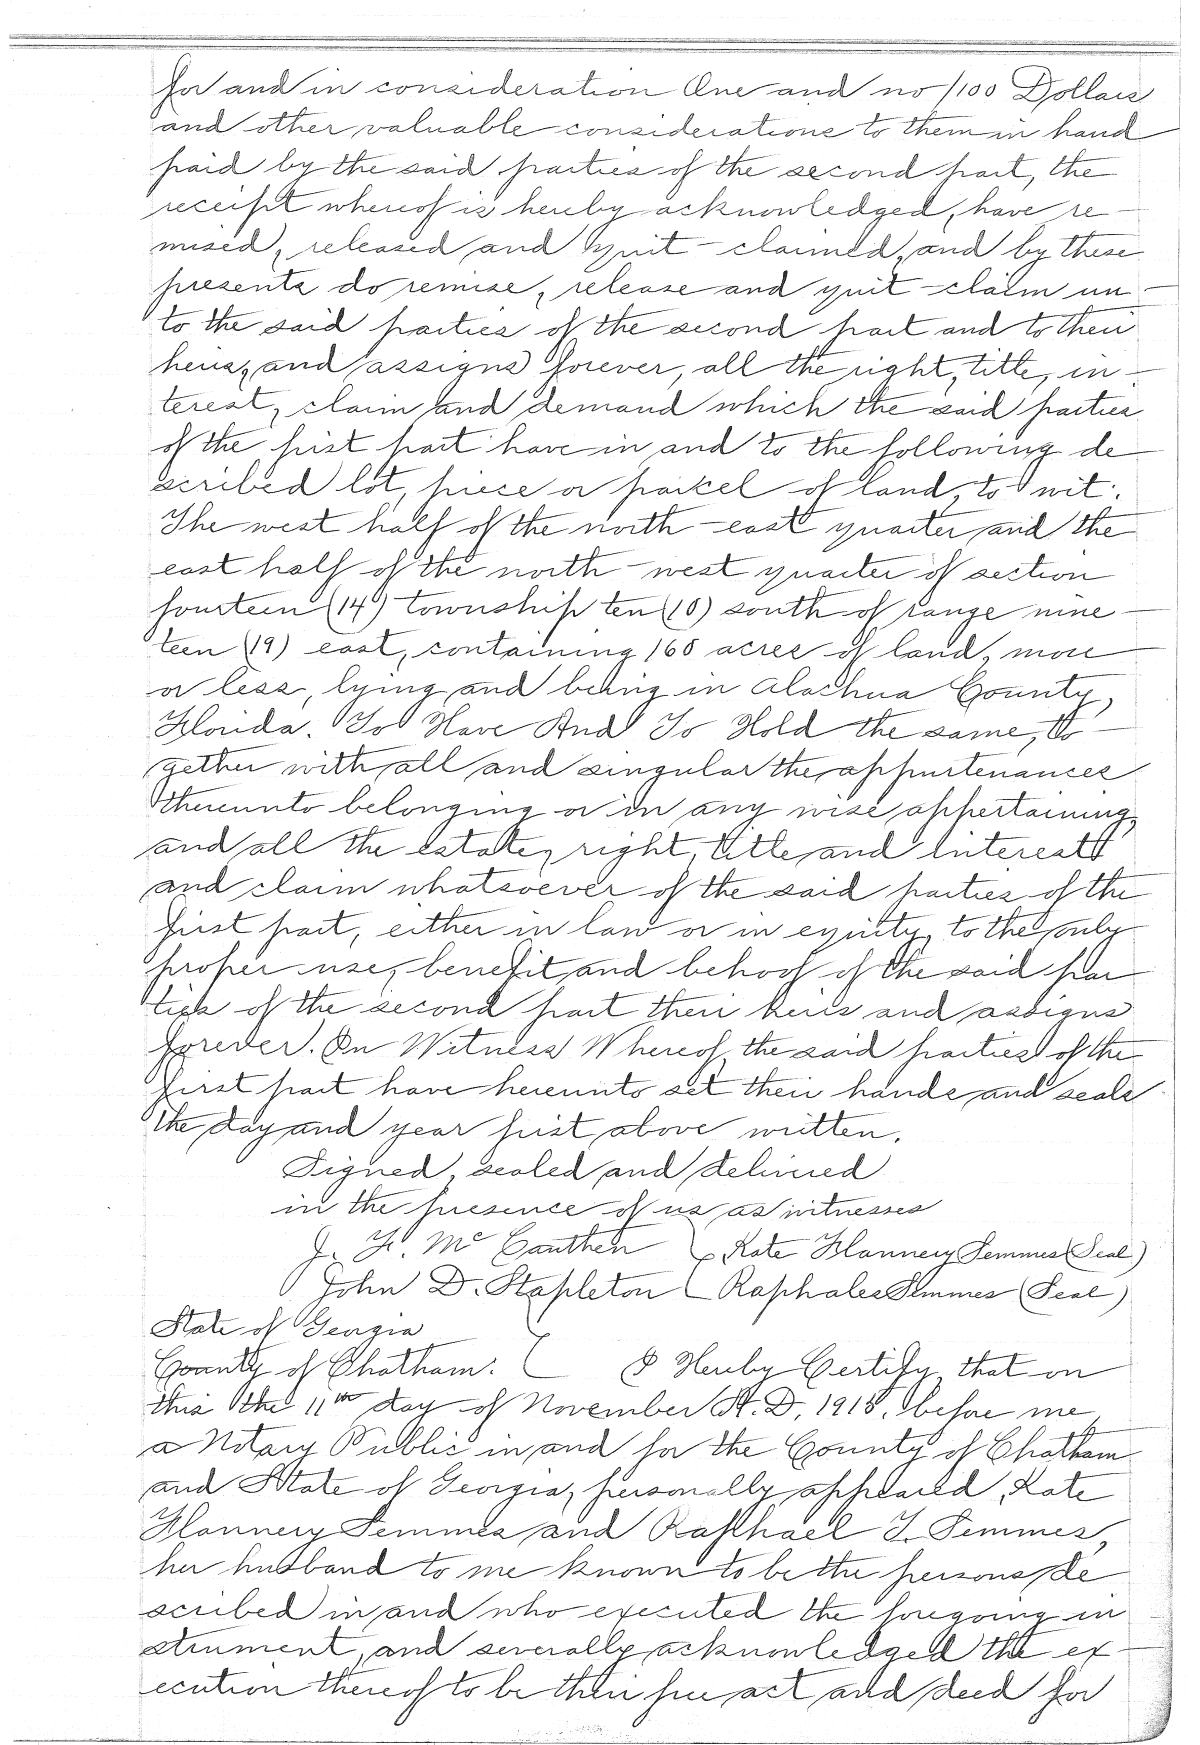 for and in consideration One and no/100 Dollars
and other valuable considerations to them in hand
paid by the said parties of the second part, the
receipt whereof is hereby acknowledged, have re-
mised, released and quit-claimed, and by these
presents do remise, release and quit-claim un-
to the said parties of the second part and to their
heirs, and assigns forever, all the right, title, in-
terest, claim and demand which the said parties
of the first part have in and to the following de-
scribed lot, piece or parcel of land, to wit:
The west half of the north-east quarter and the
east half of the north-west quarter of section
fourteen (14) township ten (10) south of range nine-
teen (19) east, containing 160 acres of land, more
or less, lying and being in Alachua County,
Florida. To Have And To Hold the same, to-
gether with all and singular the appurtenances
thereunto belonging or in any wise appertaining,
and all the estate, right, title and interest
and claim whatsoever of the said parties of the
first part, either in law or in equity, to the only
proper use, benefit and behoof of the said par
ties of the second part their heirs and assigns
forever. In Witness Whereof, the said parties of the
first part have hereunto set their hands and seals
the day and year first above written.
Signed, sealed and delivered
in the presence of us as witnesses
J. F. Mc Cauthen Kate Flannery Semmes (Seal)
John D. Stapleton Raphales Semmes (Seal)
State of Georgia
County of Chatham. I Hereby Certify, that on
this the 11th day of November A. D. 1918, before me,
a Notary Public in and for the County of Chatham
and State of Georgia, personally appeared, Kate
Flannery Semmes and Raphael T. Semmes,
her husband to me known to be the persons de
scribed in and who executed the foregoing in
strument, and severally acknowledged the ex-
ecution thereof to be their free act and deed for